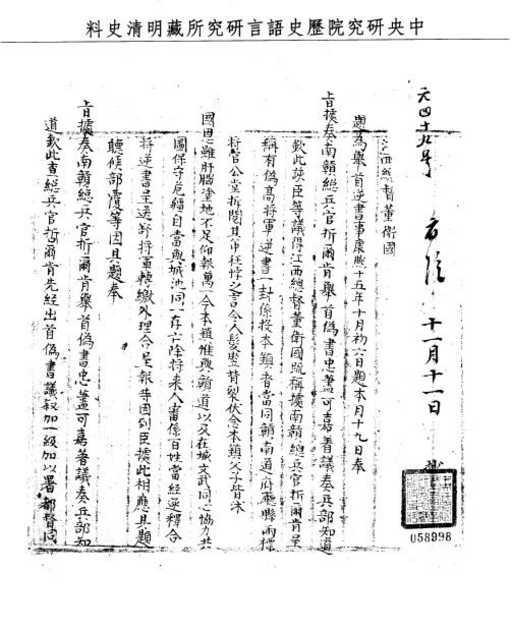 中央研究院歷史語言研究所藏明清史料
十一月十一日
江西總督董衛國
題為舉首逆書事康熙十五年十月初六日題本月十九日奉
旨據奏南贛總兵官折爾肯舉首偽書忠藎可嘉著議奏兵部知道
欽此該臣等議得江西總督董衛國疏稱據南贛總兵官折爾肯呈
稱有偽高將軍逆書一封係投本鎮者當同贛南道府廳縣兩標
將官公堂拆閱其中狂悖之言令人髮豎眥裂伏念本鎮父子皆沐
國恩雖肝腦塗地不足仰報萬一今本鎮惟與贛道以及在城文武同心協力共
圖保守危疆自當與城池同一存亡除將來人審係百姓當經逐釋合
將逆書呈送將軍轉繳外理合呈報等因到臣據此相應具題
聽候部覆等因具題奉
旨據奏南贛總兵官折爾肯舉首偽書忠藎可嘉著議奏兵部知
道欽此查總兵官折爾肯先經出首偽書議敘加一級加以署都督同
058998